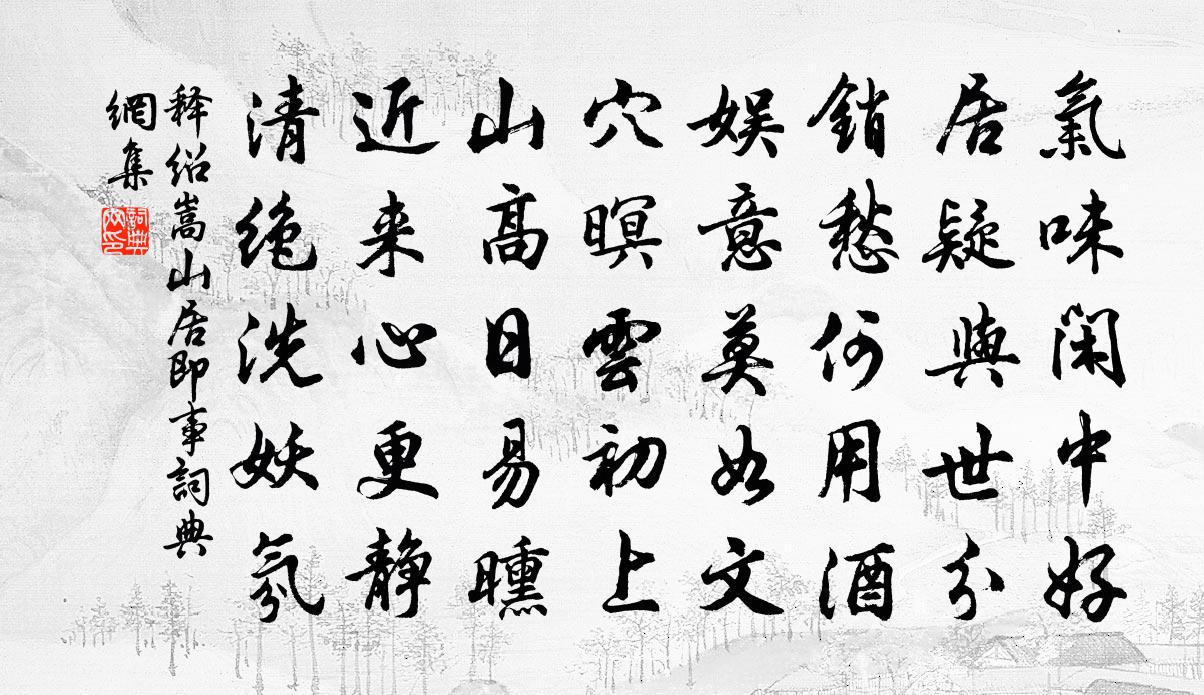 氣味閑中好
居疑與世分
銷愁何用酒
娱意莫如文
穴暝雲初上
山高日易曛
近来心更静
清绝洗妖氛
释绍嵩山居即事詞典
網集
詞典網印